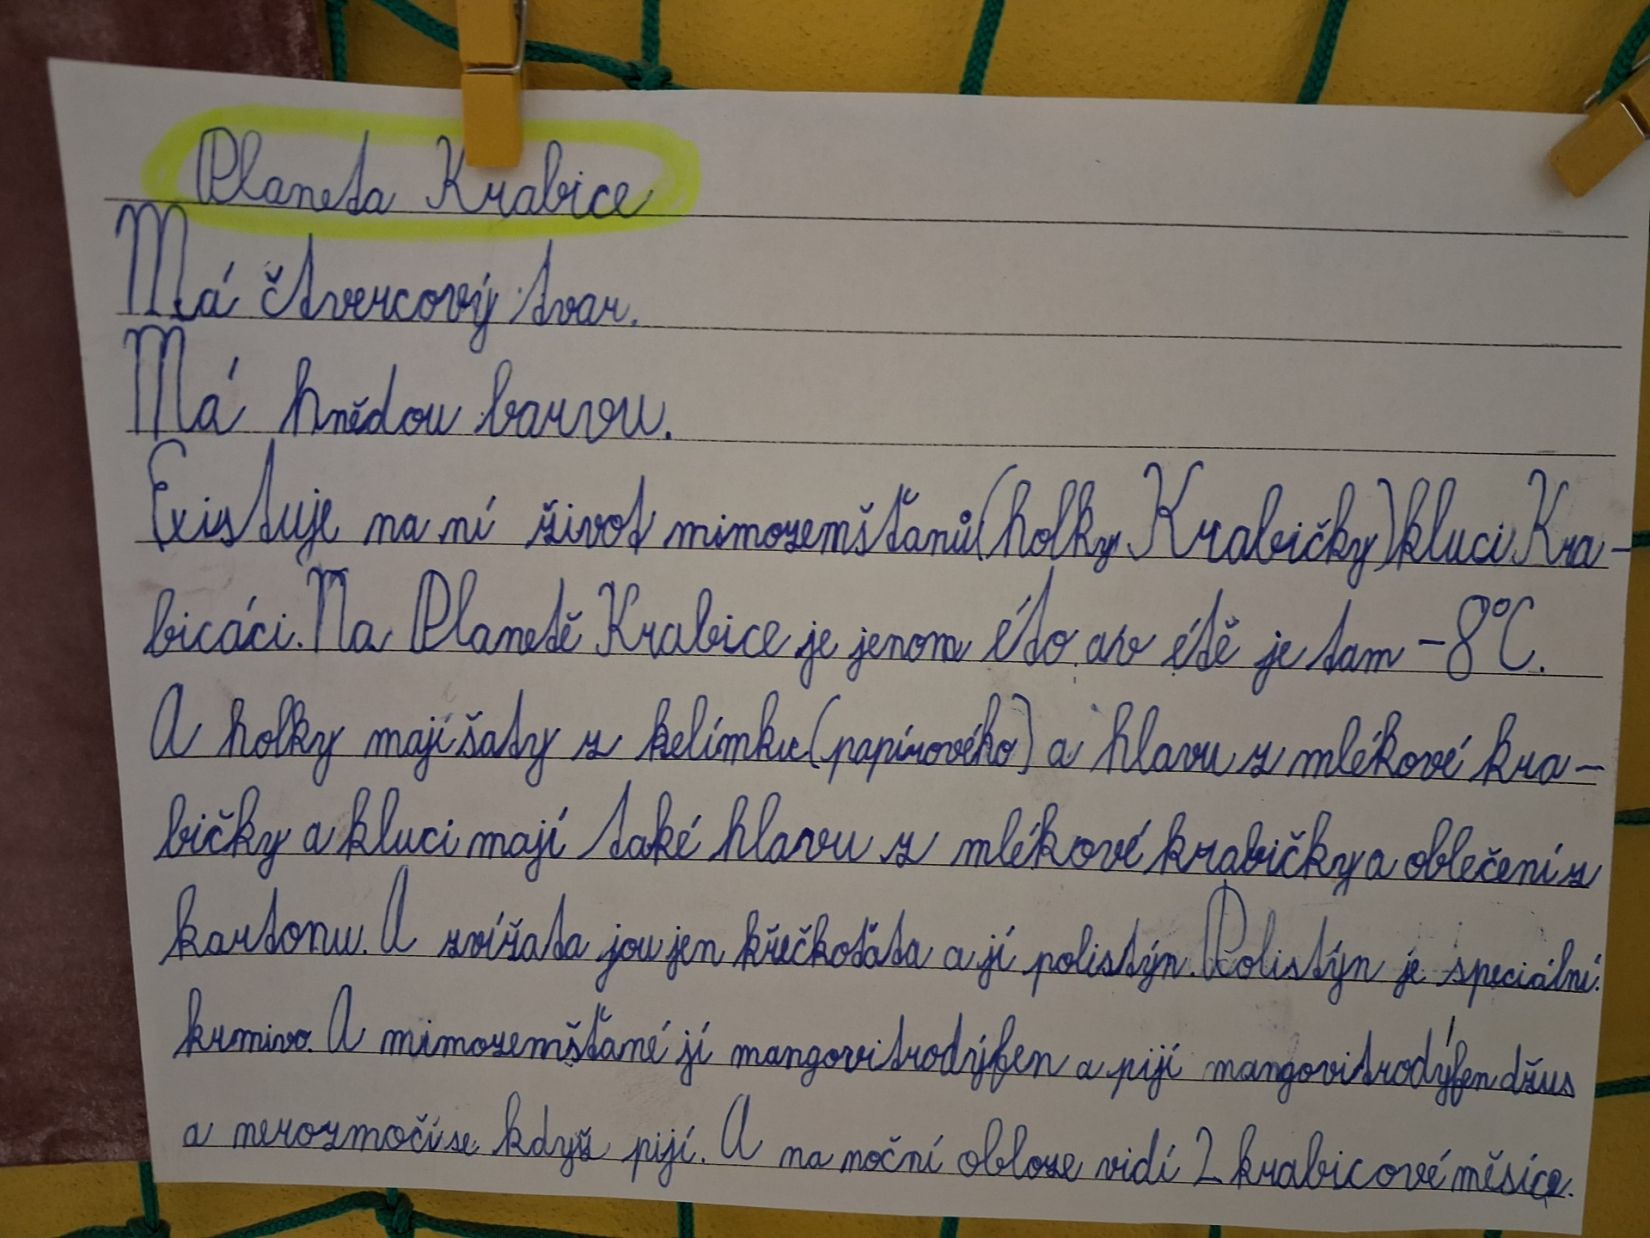 Planeta Krabice
Má čtvercový tvar.
Má hnědou barvu.
Existuje na ní život mimozemšťanů(holky Krabičky)kluci Kra-
bicáci. Na Planetě Krabice je jenom éto a v étě je tam -8°C.
A holky mají šaty z kelímku(papírového) a hlavu z mlékové kra-
bičky a kluci mají také hlavu z mlékové krabičky a oblečení z
kartonu. A zvířata jou jen křečkoťata a jí polistýn. Polistýn je speciální
krmivo. A mimozemšťané jí mangovitrodýfen a pijí mangovitrodýfen džus
a nerozmočí se když pijí. A na noční obloze vidí 2 krabicové měsíce.